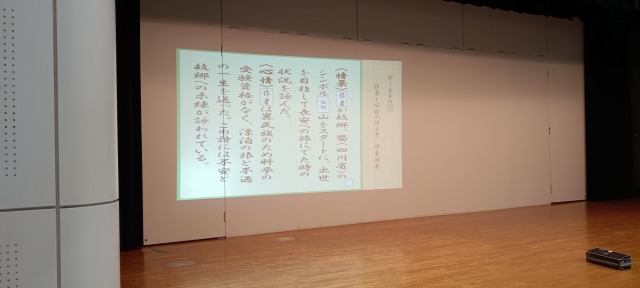 〈情景〉作者が故郷、蜀(四川省)の
シンボル 山をスタートに、出世
を目指して長安への旅にでた時の
状況を詠んだ。
〈心情〉作者は異民族のため科挙の
受験資格がなく、漂泊の旅と不遇
の一生を送った。この詩には不安と
故郷への未練が詠われている。